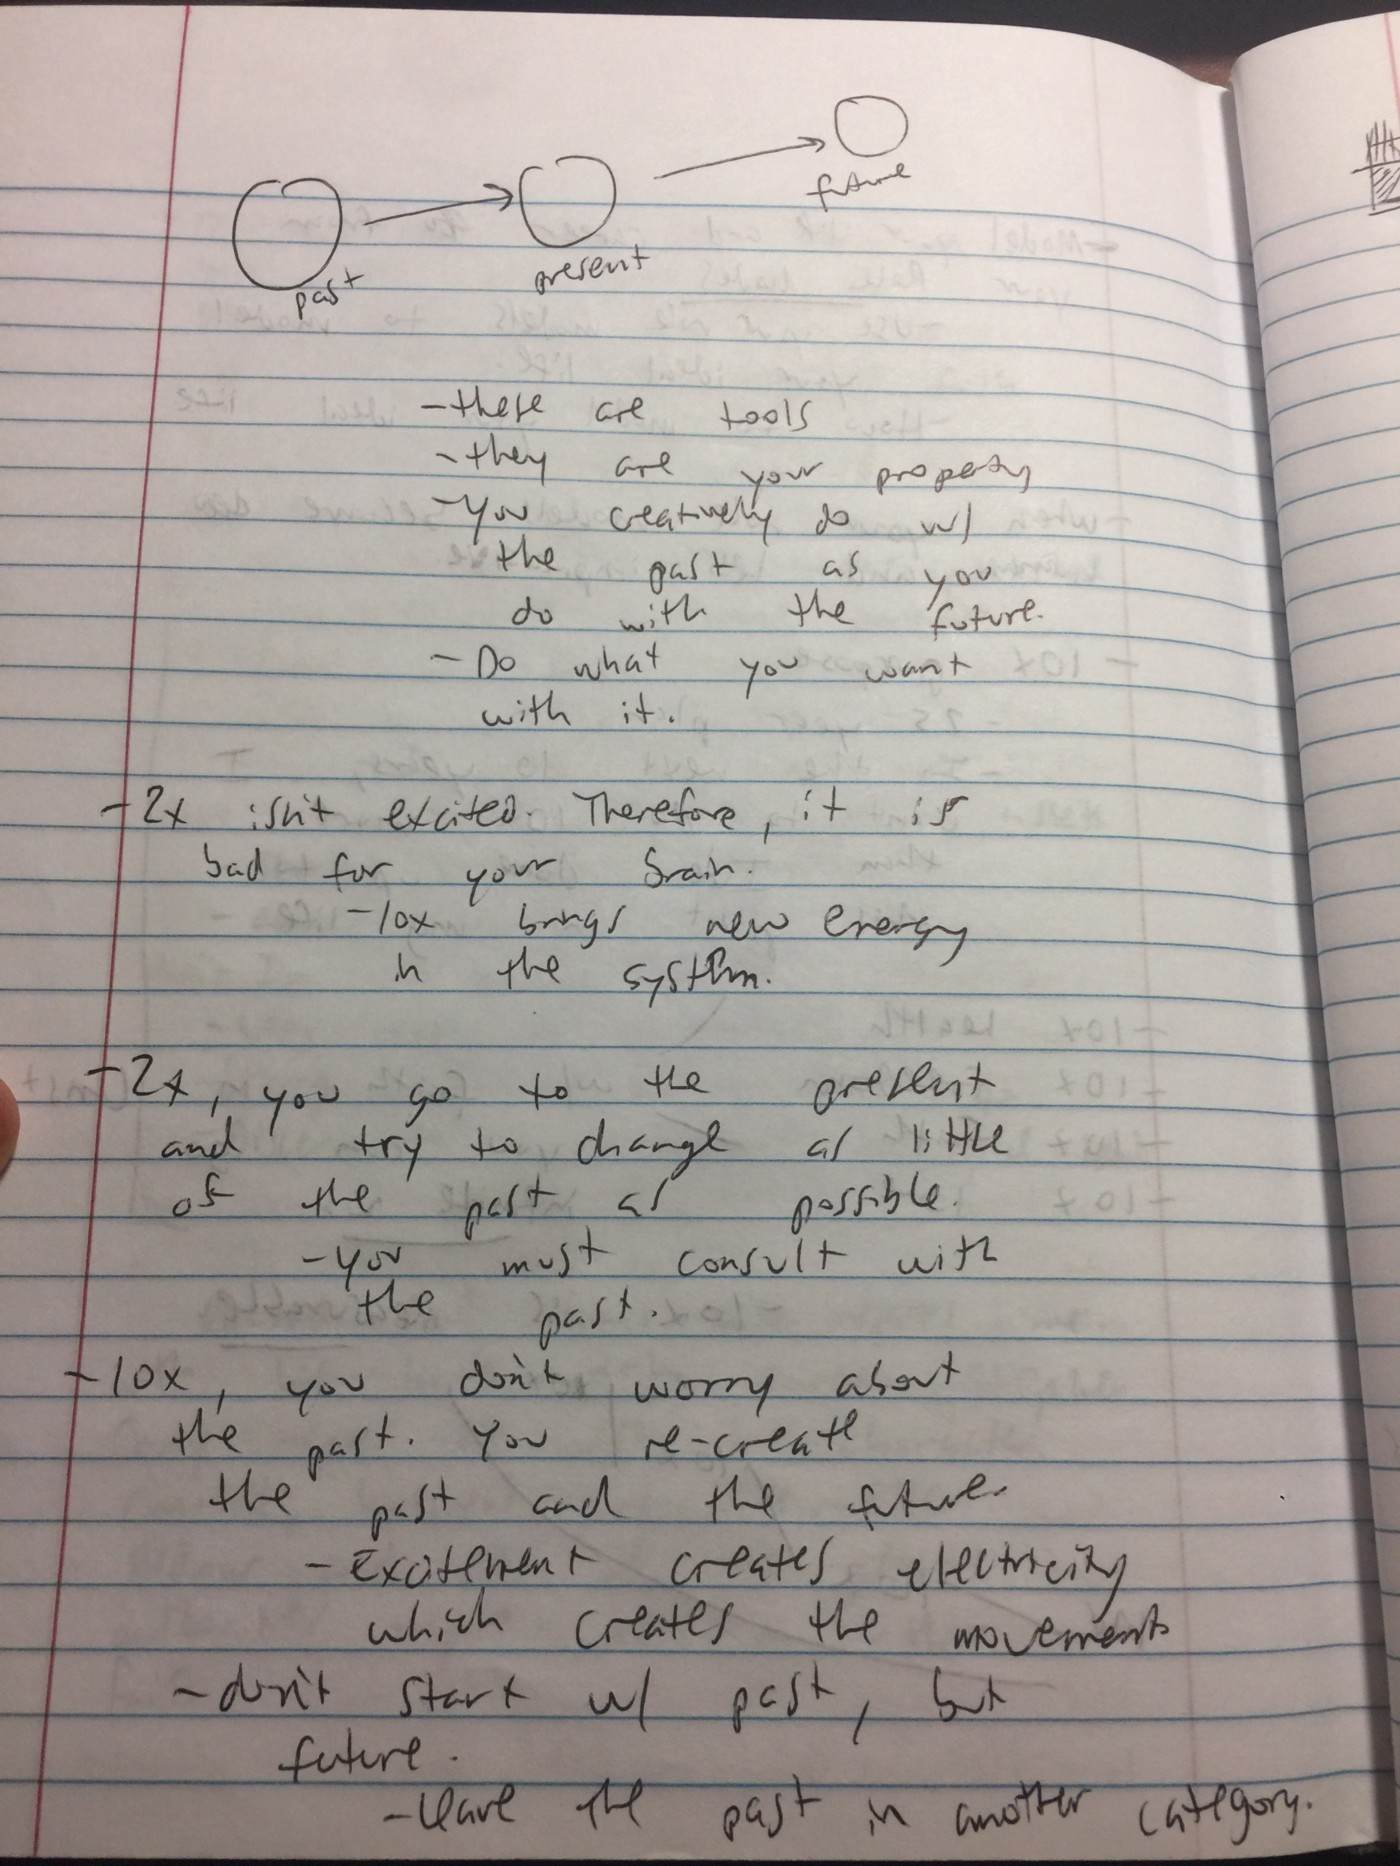 past
present
future
- these are tools
- they are your property
- you creatively do w/
the past as you
do with the future.
- Do what you want
with it.
- 2x isn't excited. Therefore, it is
bad for your brain.
- 10x brings new energy
in the system.
- 2x, you go to the present
and try to change as little
of the past as possible.
- you must consult with
the past.
- 10x, you don't worry about
the past. You re-create
the past and the future.
- Excitement creates electricity
which creates the movements
- don't start w/ past, but
future.
- leave the past in another category.